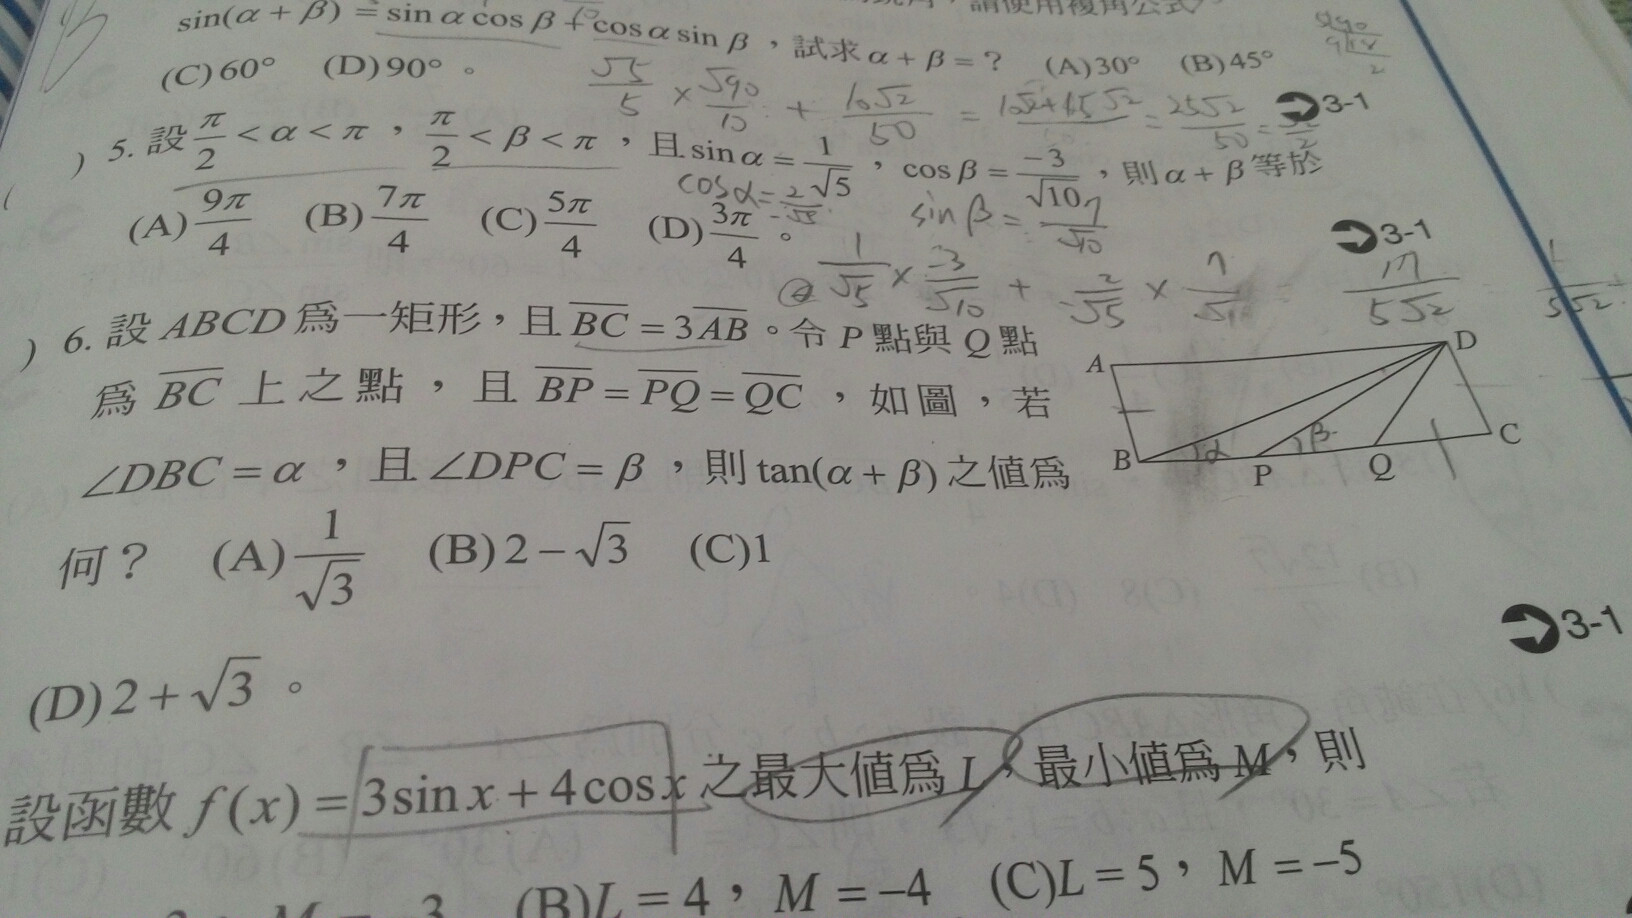 sin(α + β) = sin α cos β + cos α sin β，試求 α + β = ？ (A)30° (B)45°
(C)60° (D)90°。
√5/5 × √90/10 + 10√2/50 = 10√2+15√2/50 = 25√2/50 = √2/2
3-1
) 5. 設 π/2 < α < π，π/2 < β < π，且 sin α = 1/√5，cos β = -3/√10，則 α + β 等於
(A) 9π/4 (B) 7π/4 (C) 5π/4 (D) 3π/4。
cosα = 2/-√5
sinβ = 1/√10
3-1
1/√5 × -3/√10 + 2/-√55 × 1/√10
) 6. 設 ABCD 為一矩形，且 BC = 3AB。令 P 點與 Q 點
為 BC 上之點，且 BP = PQ = QC，如圖，若
∠DBC = α，且 ∠DPC = β，則 tan(α + β) 之值為
何？ (A) 1/√3 (B) 2 − √3 (C)1
(D) 2 + √3。
A
D
B
P
Q
C
α
β
3-1
設函數 f(x) = 3sin x + 4cos x 之最大值為 L，最小值為 M，則
(B)L = 4，M = −4 (C)L = 5，M = −5